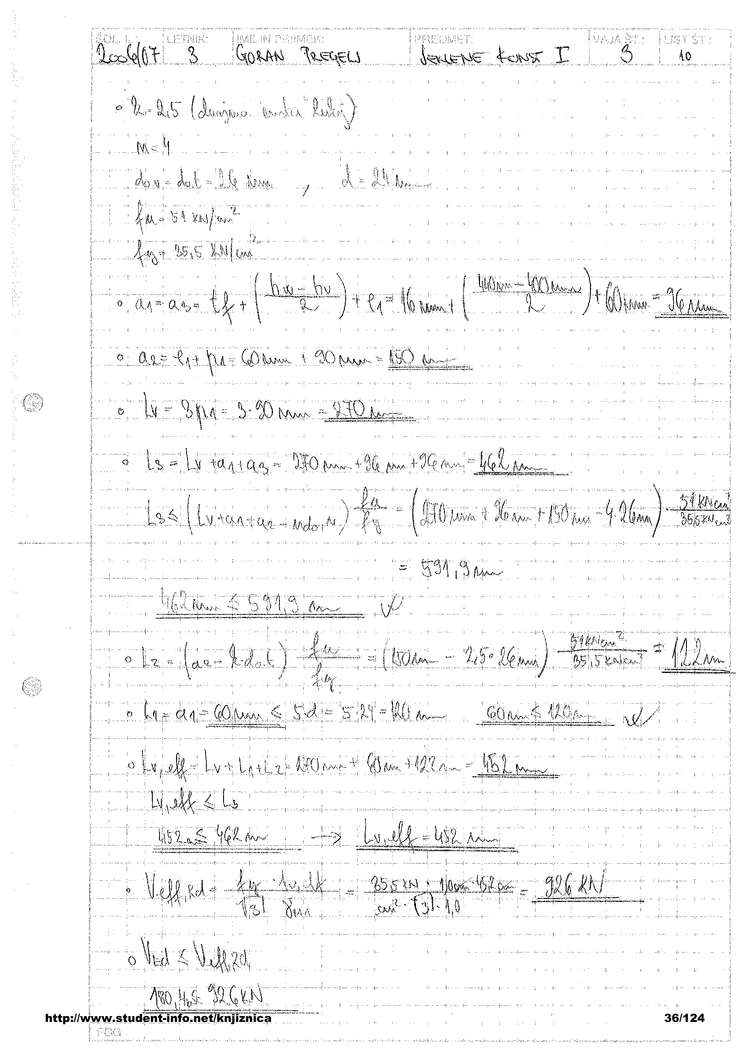 ŠOL. L.: LETNIK: IME IN PRIIMEK: PREDMET: VAJA ŠT.: LIST ŠT.:
2006/07 3 GORAN PREGELJ JEKLENE KONST I 3 10
• k = 2,5 (dvojna vrsta lukenj)
n = 4
do,v = do,t = 26 mm , d = 24 mm
fu = 51 kN/cm²
fy = 35,5 kN/cm²
• a1 = a3 = tf + ((hw - hv)/2) + e1 = 16 mm + ((440 mm - 400 mm)/2) + 60 mm = 96 mm
• a2 = e1 + p1 = 60 mm + 90 mm = 150 mm
• Lv = 3p1 = 3·90 mm = 270 mm
• L3 = Lv + a1 + a3 = 270 mm + 96 mm + 96 mm = 462 mm
L3 ≤ (Lv + a1 + a2 - n do,v) fu/fy = (270 mm + 96 mm + 150 mm - 4·26 mm) · 51 kN cm²/35,5 kN cm²
= 591,9 mm
462 mm ≤ 591,9 mm ✓
• L2 = (a2 - k·do,t) fu/fy = (150 mm - 2,5·26 mm) · 51 kN cm²/35,5 kN/cm² = 122 mm
• L1 = a1 = 60 mm ≤ 5·d = 5·24 = 120 mm 60 mm ≤ 120 mm ✓
• Lv,eff = Lv + L1 + L2 = 270 mm + 60 mm + 122 mm = 452 mm
Lv,eff ≤ L3
452 ≤ 462 mm → Lv,eff = 452 mm
• Veff,Rd = fy/√3 · Av,eff/γM1 = 35,5 kN · 1,0 cm · 45,2 cm/cm² · √3 · 1,0 = 926 kN
• VEd ≤ Veff,Rd
180,4 ≤ 926 kN
http://www.student-info.net/knjiznica 36/124
FGG